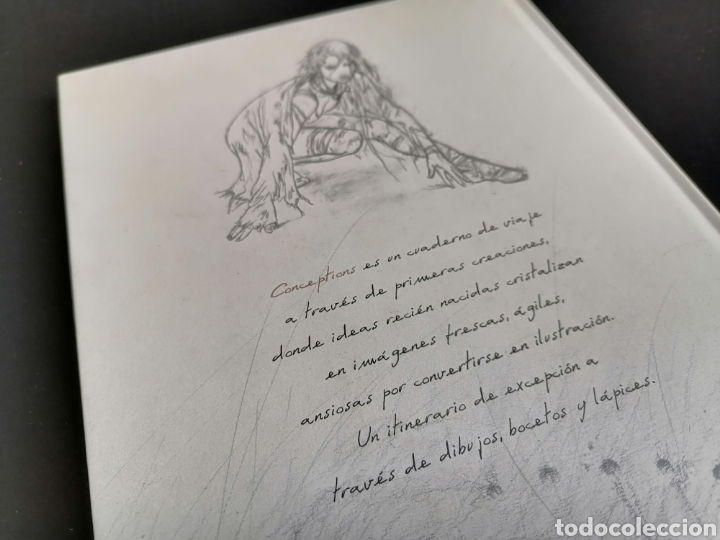 Conceptions es un cuaderno de viaje
a través de primeras creaciones,
donde ideas recién nacidas cristalizan
en imágenes frescas, ágiles,
ansiosas por convertirse en ilustración.
Un itinerario de excepción a
través de dibujos, bocetos y lápices.
todocoleccion